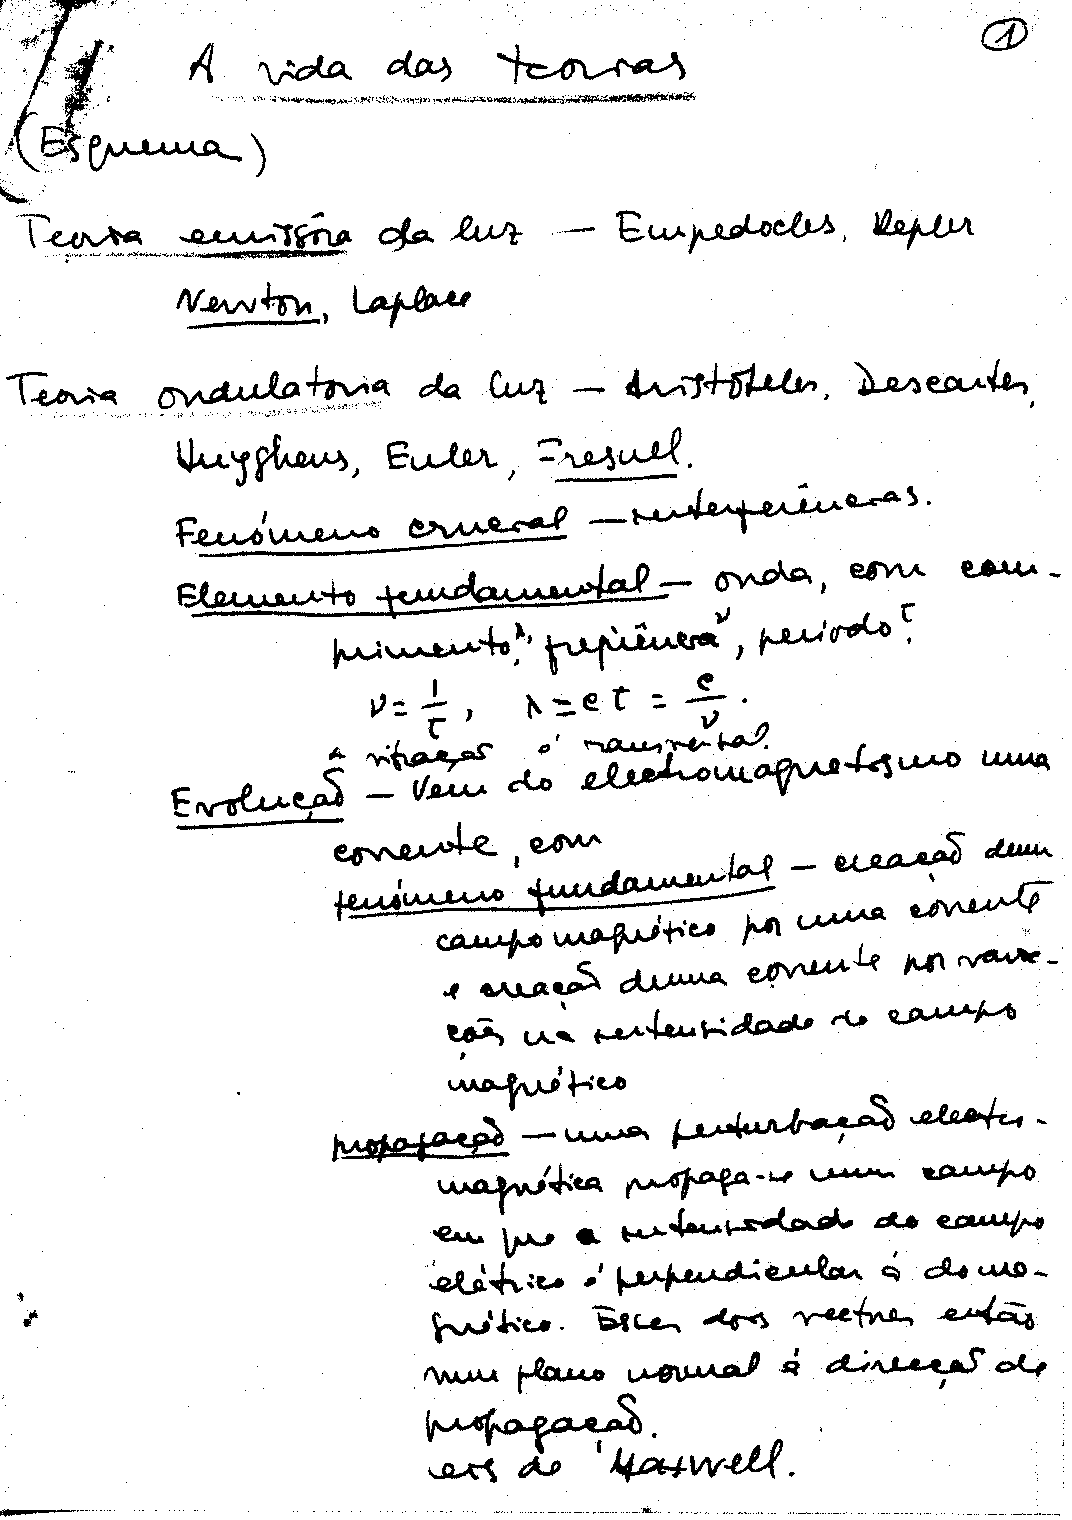 1
A vida das teorias
(Esquema)
Teoria emissôra da luz — Empedocles, Kepler
Newton, Laplace
Teoria ondulatoria da luz — Aristóteles, Descartes,
Huyghens, Euler, Fresnel.
Fenómeno crucial — interferências.
Elemento fundamental — onda, com com-
primento λ, frequência ν, periodo τ.
ν = 1/τ, λ = cτ = c/ν.
A vibração é transversal.
Evolução — Vem do electromagnetismo uma
corrente, com
fenómeno fundamental — creação dum
campo magnético por uma corrente
e creação duma corrente por varia-
ções na intensidade do campo
magnético
propagação — uma perturbação electro-
magnética propaga-se num campo
em que a intensidade do campo
elétrico é perpendicular á do ma-
gnético. Esses dois vectores estão
num plano normal á direcção de
propagação.
Leis de Maxwell.